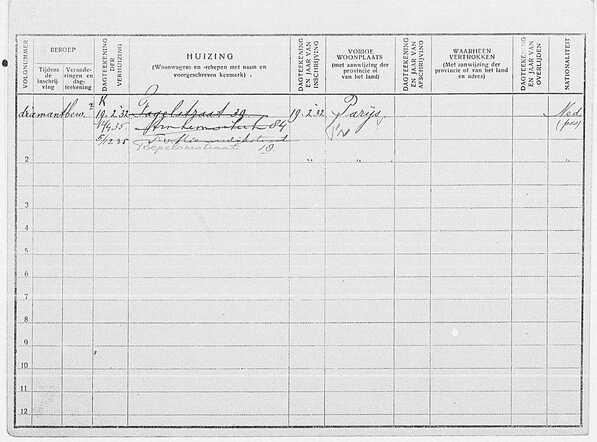 VOLGNUMMER
BEROEP
Tijdens de inschrijving
Veranderingen en dagteekening
DAGTEEKENING DER VERHUIZING
HUIZING
(Woonwagens en -schepen met naam en voorgeschreven kenmerk)
DAGTEEKENING EN JAAR VAN INSCHRIJVING
VORIGE WOONPLAATS
(met aanwijzing der provincie of van het land)
DAGTEEKENING EN JAAR VAN AFSCHRIJVING
WAARHEEN VERTROKKEN
(Met aanwijzing der provincie of van het land en adres)
DAGTEEKENING EN JAAR VAN OVERLIJDEN
NATIONALITEIT
K
diamantbew. 19.2.'32 Gagelstraat 39 19.2.'32 Parijs Ned.
84 (pas)
5/12 35
18
2 " " "
3
4
5
6
7
8
9
10
11
12